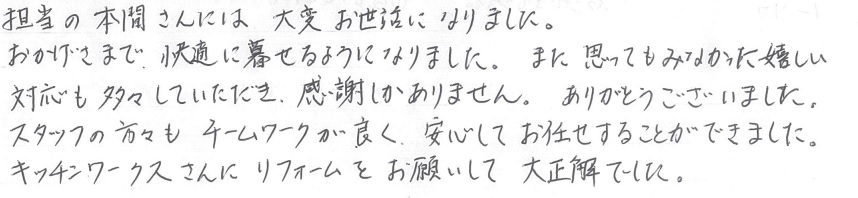 担当の本間さんには 大変お世話になりました。
おかげさまで、快適に暮せるようになりました。 また 思ってもみなかった嬉しい
対応も多々していただき、感謝しかありません。 ありがとうございました。
スタッフの方々も チームワークが良く、安心して お任せすることができました。
キッチンワークスさんに リフォームを お願いして 大正解でした。